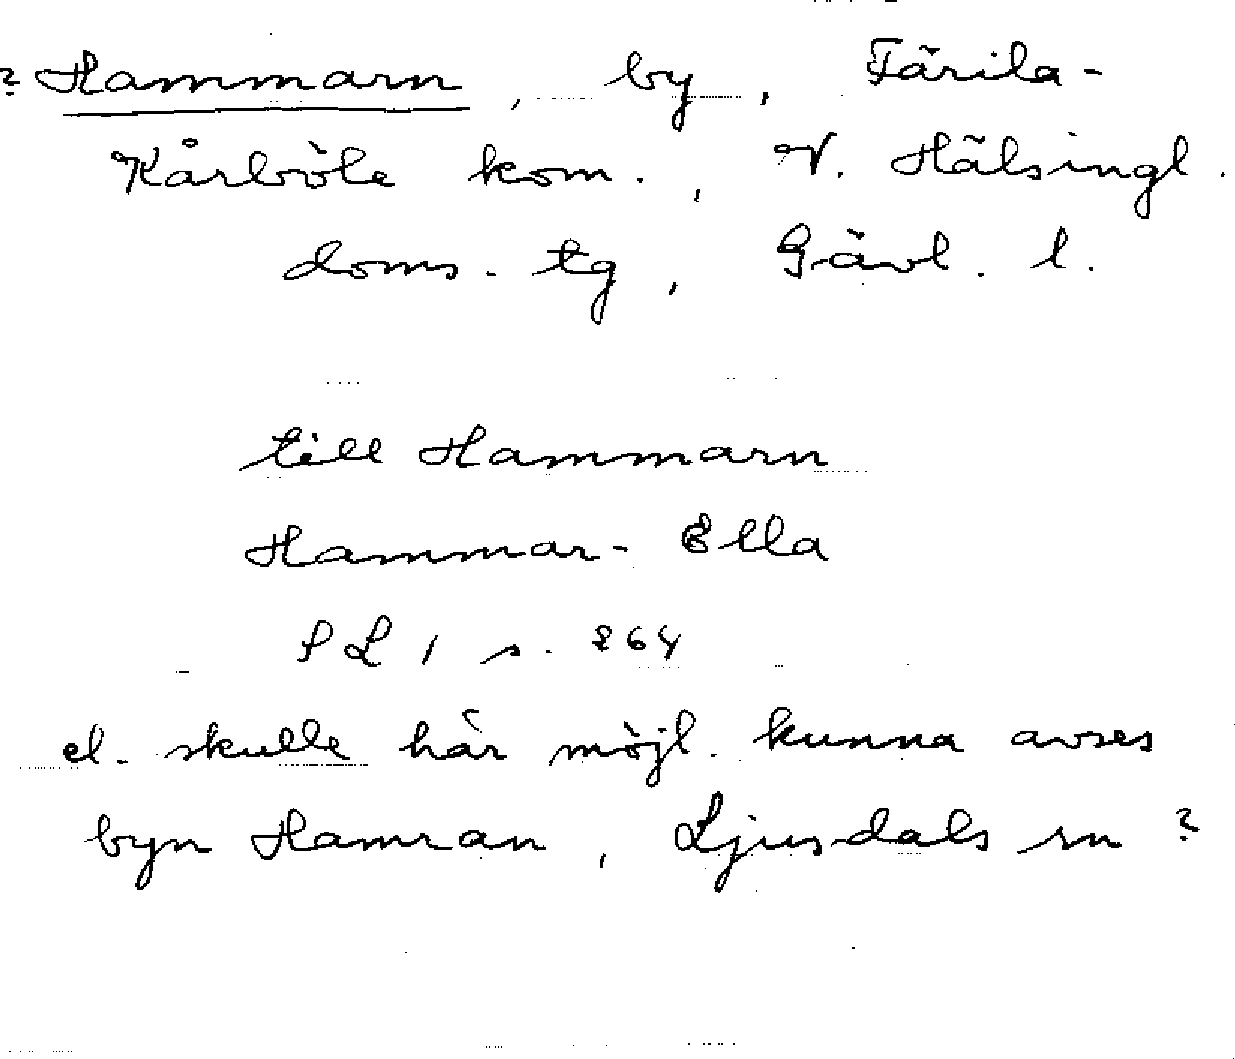 ? Hammarn, by, Färila-
Kårböle kom., V. Hälsingl.
doms. tg, Gävl. l.
till Hammarn
Hammar-Ella
PL 1 s. 264
el. skulle här möjl. kunna avses
byn Hamran, Ljusdals sn ?